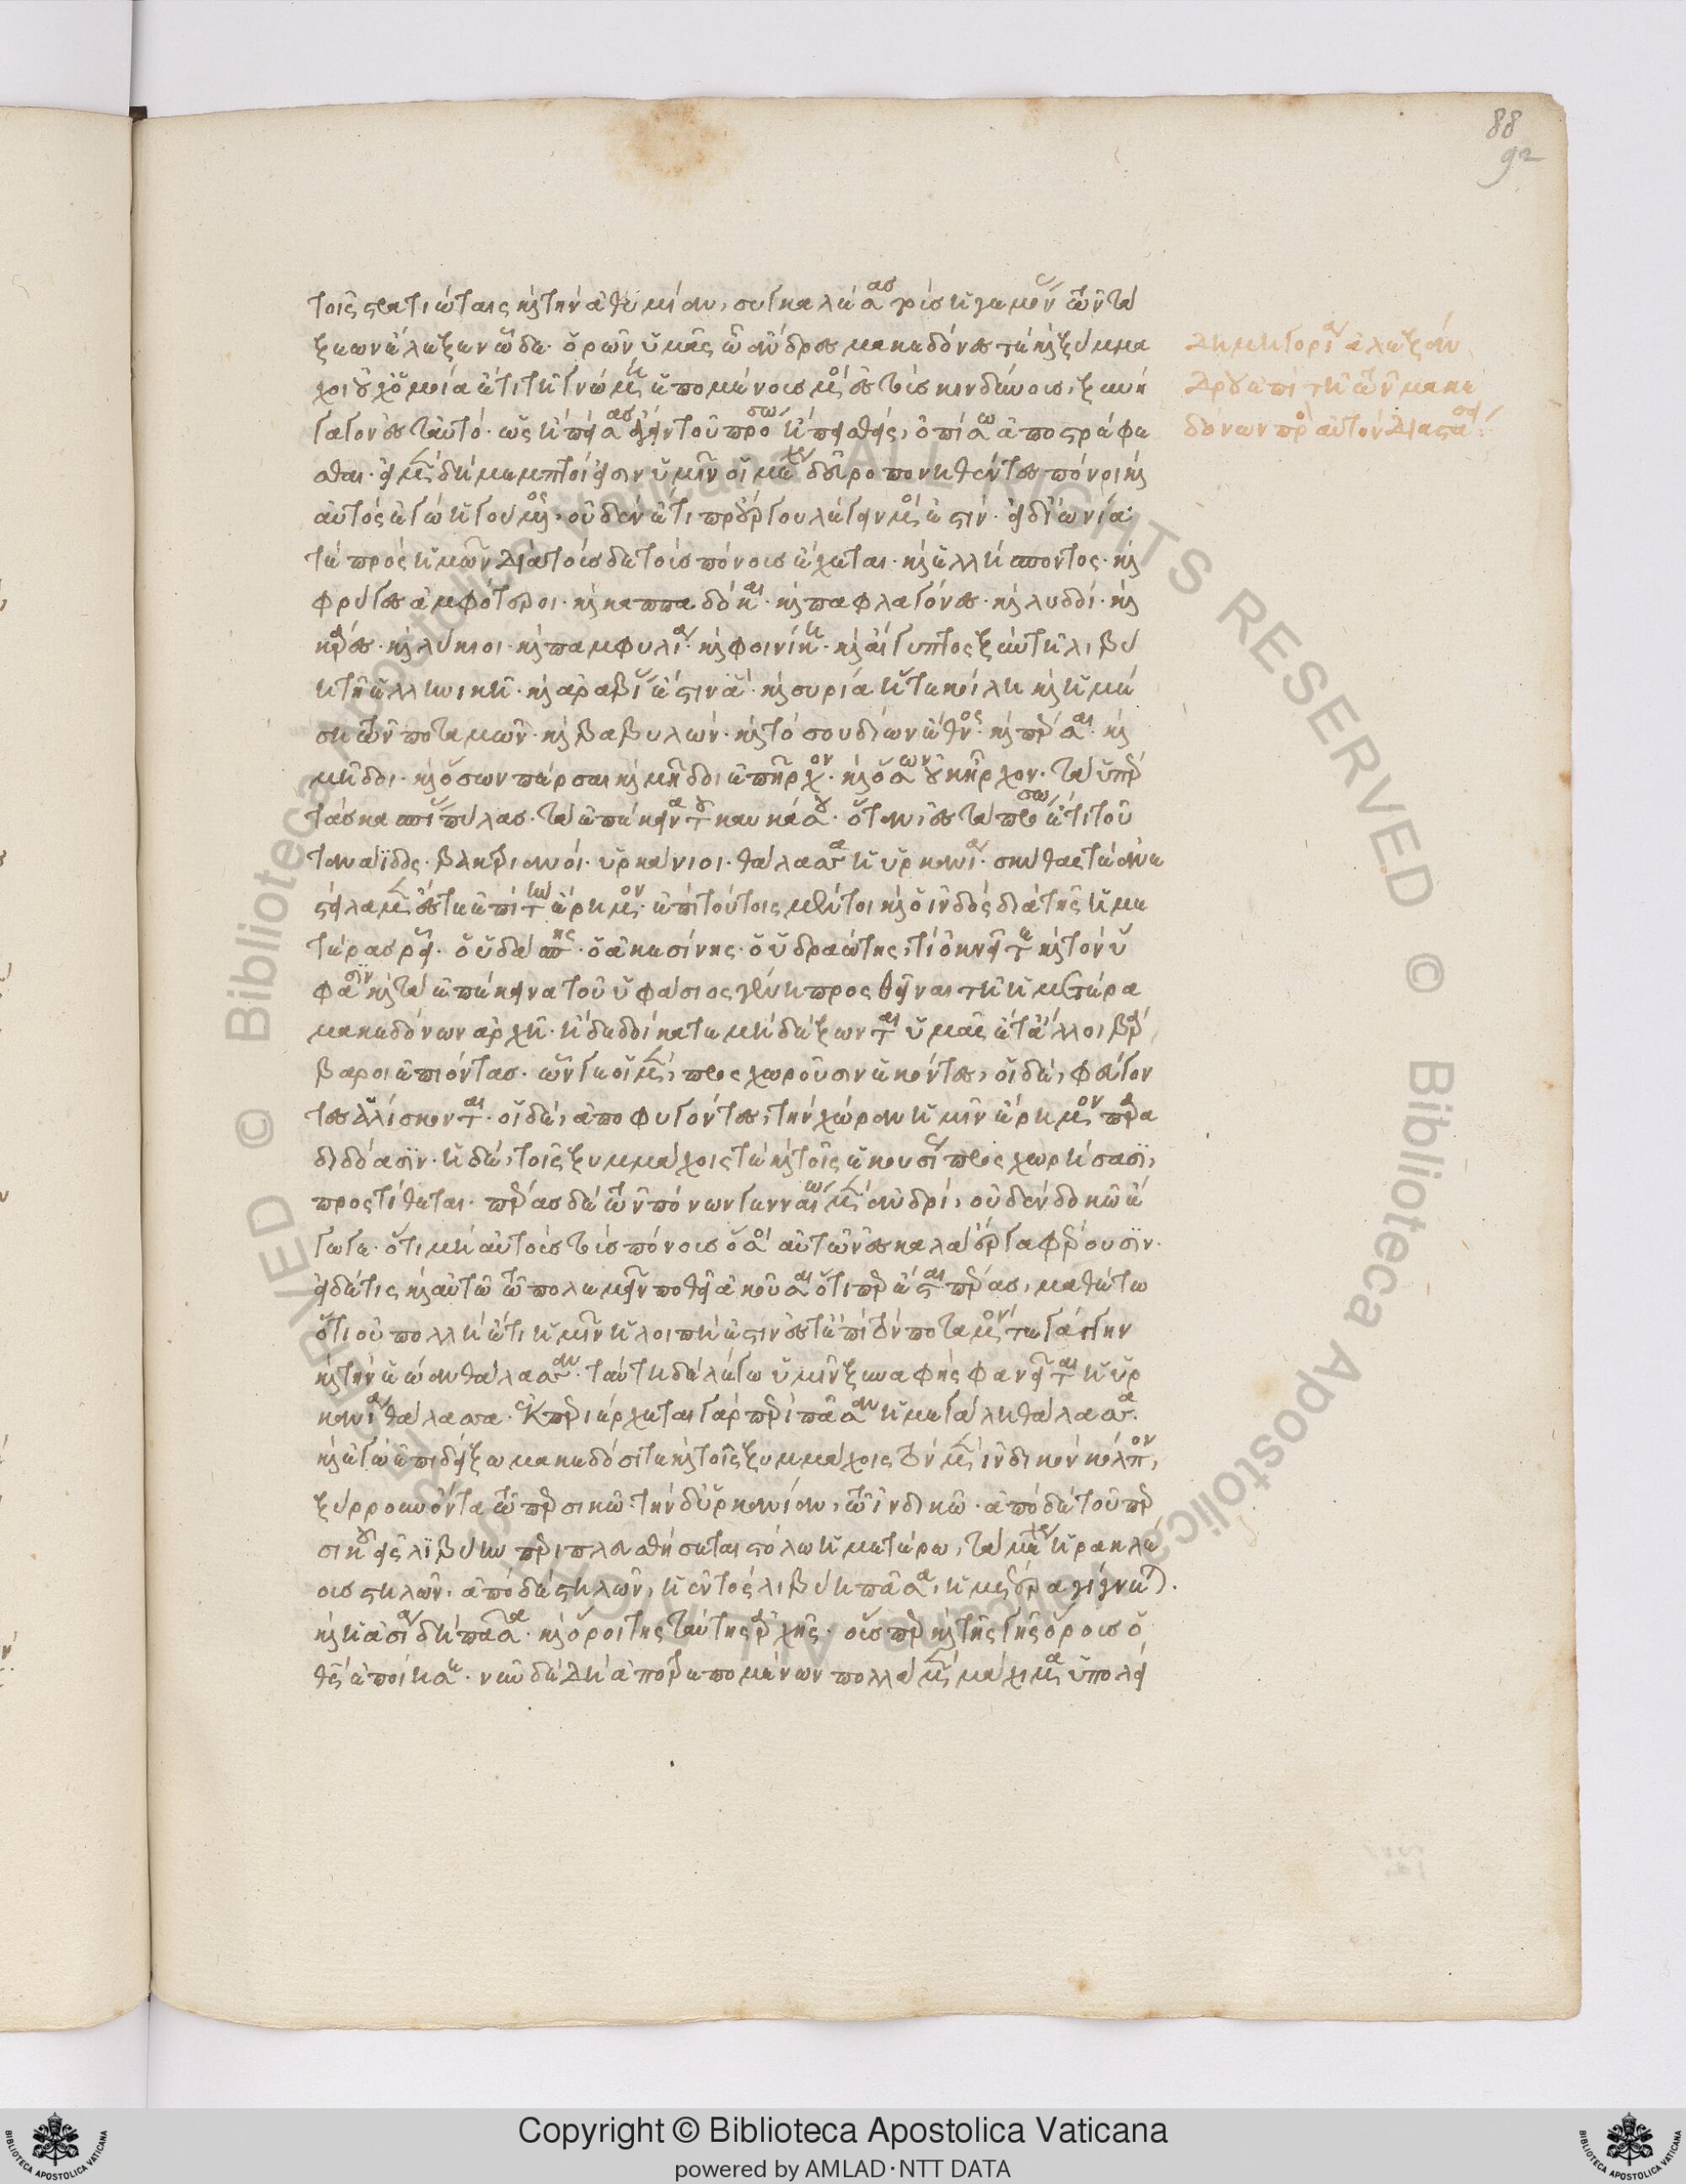 τοῖς στρατιώταις καὶ τὴν ἀθυμίαν, συγκαλέσας τοὺς ἡγεμόνας τῶν τά
ξεων ἔλεξεν ὧδε· ὁρῶν ὑμᾶς ὦ ἄνδρες μακεδόνες τε καὶ ξύμμα
χοι οὐχ ὁμοίᾳ ἔτι τῇ γνώμῃ ἑπομένους μοι ἐς τοὺς κινδύνους, ξυνή
γαγον ἐς ταὐτό· ὡς ἢ πείσας ἄγειν τοῦ πρόσω ἢ πεισθεὶς, ὀπίσω ἀποστρέφε
σθαι· εἰ μὲν δὴ μεμπτοί εἰσιν ὑμῖν οἱ μέχρι δεῦρο πονηθέντες πόνοι καὶ
αὐτὸς ἐγὼ ἡγούμενος, οὐδὲν ἔτι προὔργου λέγειν μοι ἐστίν· εἰ δὲ ἰωνία
τε πρὸς ἡμῶν διὰ τούσδε τοὺς πόνους ἔχεται· καὶ ἑλλήσποντος· καὶ
φρύγες ἀμφότεροι· καὶ καππαδόκαι· καὶ παφλαγόνες· καὶ λυδοὶ· καὶ
κᾶρες· καὶ λύκιοι· καὶ παμφυλία· καὶ φοινίκη· καὶ αἴγυπτος ξὺν τῇ λιβύ
ῃ τῇ ἑλληνικῇ· καὶ ἀραβίας ἔστιν ἅ· καὶ συρία ἥ τε κοίλη καὶ ἡ μέ
ση τῶν ποταμῶν· καὶ βαβυλών· καὶ τὸ σουσίων ἔθνος· καὶ πέρσαι· καὶ
μῆδοι· καὶ ὅσων πέρσαι καὶ μῆδοι ἐπῆρχον· καὶ ὅσων οὐκ ἦρχον· τὰ ὑπὲρ
τὰς κασπίας πύλας· τὰ ἐπέκεινα τοῦ καυκάσου· ὁ τάναϊς τὰ πρόσω ἔτι τοῦ
τανάϊδος· βακτριανοί· ὑρκάνιοι· θάλασσα ἡ ὑρκανία· σκύθας τε ἀνε
στείλαμεν ἔστε ἐπὶ τὴν ἔρημον· ἐπὶ τούτοις μέντοι καὶ ὁ ἰνδὸς διὰ τῆς ἡμε
τέρας ῥεῖ· ὁ ὑδάσπης· ὁ ἀκεσίνης· ὁ ὑδραώτης, τί ὀκνεῖτε καὶ τὸν ὕ
φασιν καὶ τὰ ἐπέκεινα τοῦ ὑφάσιος γένη προσθεῖναι τῇ ἡμετέρᾳ
μακεδόνων ἀρχῇ· ἢ δεδοίκατε μὴ δέξωνται ὑμᾶς ἔτ' ἄλλοι βάρ
βαροι ἐπιόντας· ὧν γε οἱ μέν, προσχωροῦσιν ἑκόντες, οἱ δέ, φεύγον
τες ἁλίσκονται· οἱ δέ, ἀποφυγόντες, τὴν χώραν ἡμῖν ἔρημον παρα
διδόασιν· ἡ δέ, τοῖς ξυμμάχοις τε καὶ τοῖς ἑκοῦσι προσχωρήσασι,
προστίθεται· πέρας δὲ τῶν πόνων γενναίῳ μὲν ἀνδρί, οὐδὲν δοκῶ ἔ
γωγε· ὅτι μὴ αὐτοὺς τοὺς πόνους ὅσοι αὐτῶν ἐς καλὰ ἔργα φέρουσιν·
εἰ δέ τις καὶ αὐτῷ τῷ πολεμεῖν ποθεῖ ἀκοῦσαι ὅτι περ ἔσται πέρας, μαθέτω
ὅτι οὐ πολλὴ ἔτι ἡμῖν ἡ λοιπή ἐστιν ἔστε ἐπὶ τὸν ποταμόν τε γάγγην
καὶ τὴν ἑῴαν θάλασσαν· ταύτῃ δὲ λέγω ὑμῖν ξυναφὴς φανεῖται ἡ ὑρ
κανία θάλασσα· ἐκπεριέρχεται γὰρ περὶ πᾶσαν ἡ μεγάλη θάλασσα·
καὶ ἐγὼ ἐπιδείξω μακεδόσί τε καὶ τοῖς ξυμμάχοις τὸν μὲν ἰνδικὸν κόλπον,
ξύρρουν ὄντα τῷ περσικῷ· τὴν δ' ὑρκανίαν, τῷ ἰνδικῷ· ἀπὸ δὲ τοῦ περ
σικοῦ εἰς λιβύην περιπλευσθήσεται στόλῳ ἡμετέρῳ, τὰ μέχρι ἡρακλέ
ους στηλῶν· ἀπὸ δὲ στηλῶν, ἡ ἐντὸς λιβύη πᾶσα, ἡμετέρα γίγνεται·
καὶ ἡ ἀσία δὴ πᾶσα· καὶ ὅροι τῆς ταύτης ἀρχῆς· οὕσπερ καὶ τῆς γῆς ὅρους ὁ
θεὸς ἐποίησε· νῦν δὲ δὴ ἀποτρεπομένων πολλὰ μὲν μάχιμα ὑπολεί
δημηγορία ἀλεξάν
δρου ἐπὶ τῇ τῶν μακε
δόνων πρὸς αὐτὸν διαστάσει
88
92
Copyright © Biblioteca Apostolica Vaticana
powered by AMLAD·NTT DATA